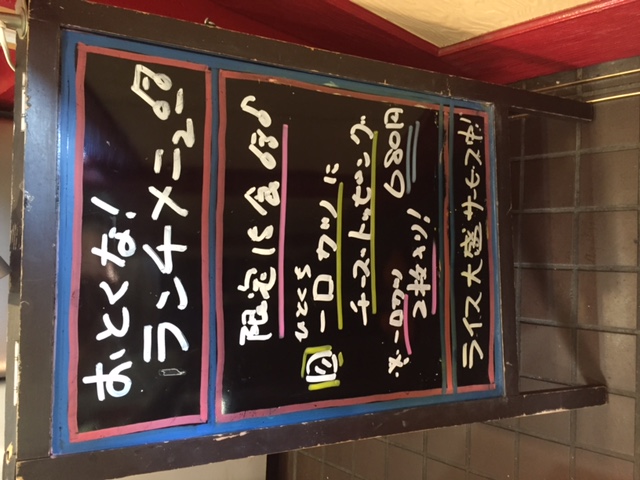 おとくな!
ランチメニュー
限定15食
ひとくち
一口カツに
チーズトッピング
680円
※一口カツ
2枚入り!
ライス大盛サービス中!